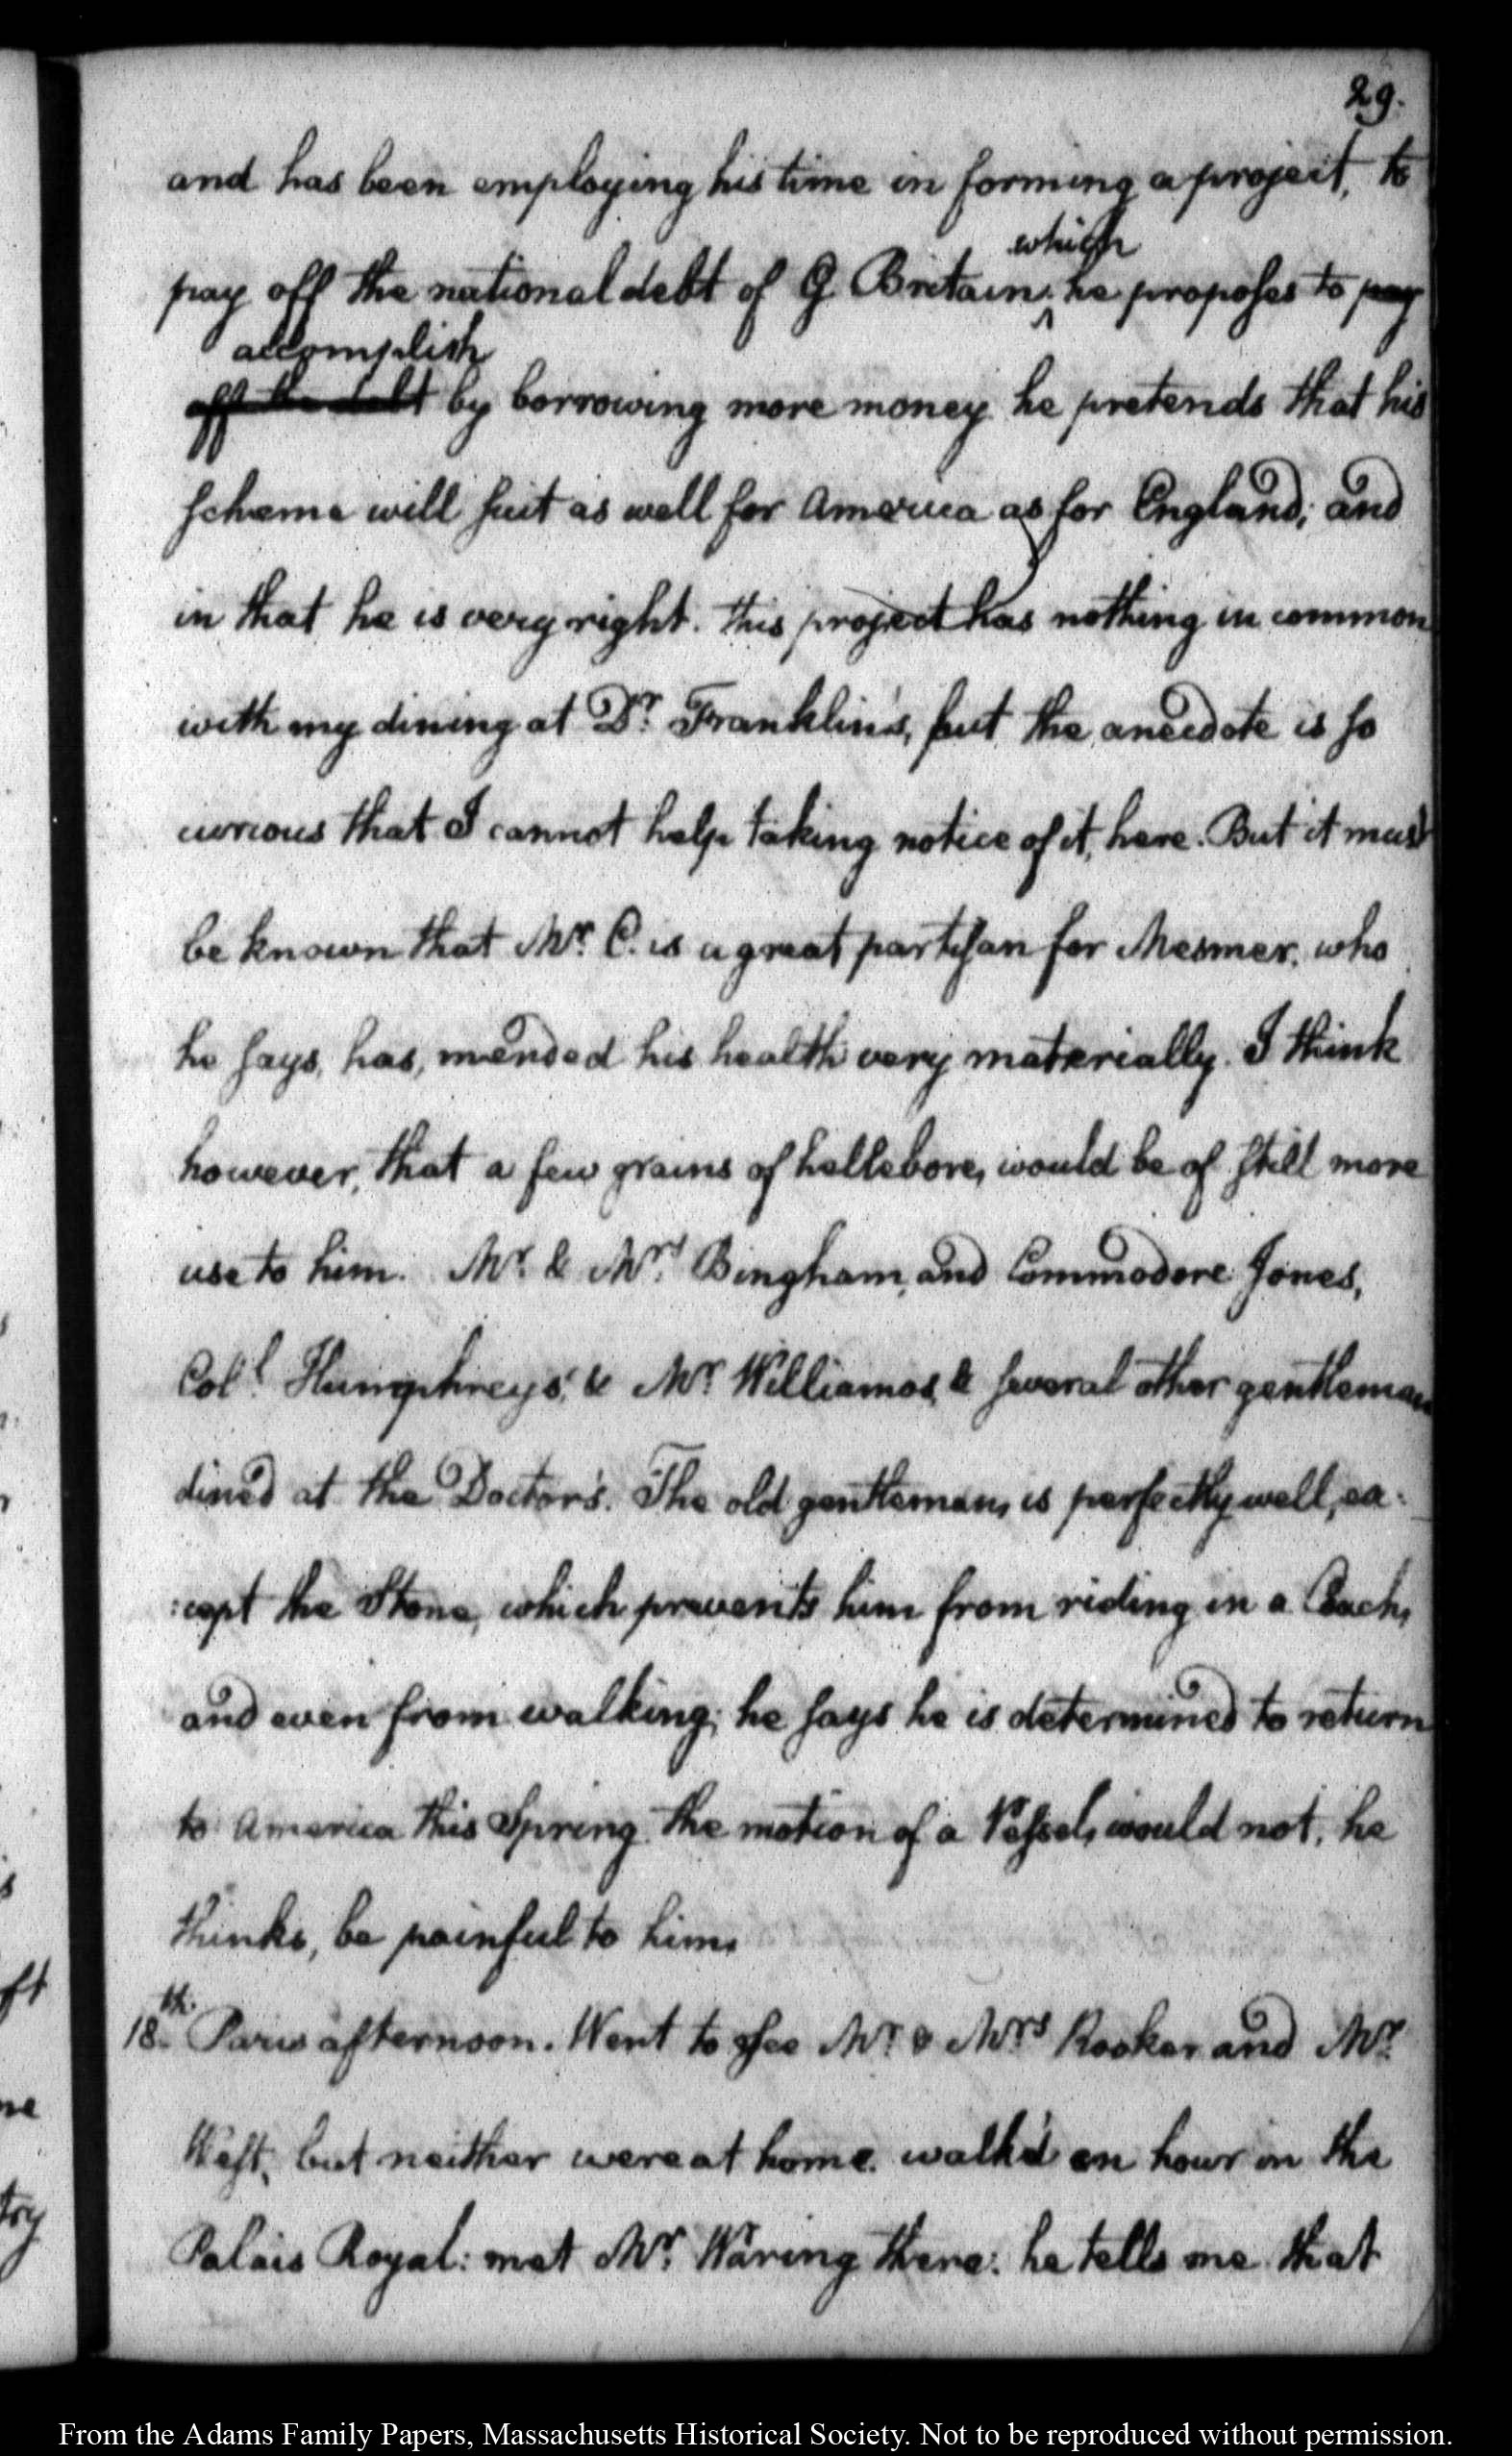 29.
and has been employing his time in forming a project, to
which
pay off the national debt of G. Britain: he proposes to pay
accomplish
off the debt by borrowing more money he pretends that his
scheme will suit as well for America as for England; and
in that he is very right. this project has nothing in common
with my dining at Dr. Franklin's, but the anecdote is so
curious that I cannot help taking notice of it, here. But it must
be known that Mr. C. is a great partisan for Mesmer, who
he says, has, mended his health very materially. I think
however, that a few grains of hellebore, would be of still more
use to him. Mr. & Mrs. Bingham, and Commodore Jones,
Coll. Humphreys, & Mr. Williamos, & several other gentlemen
dined at the Doctor's. The old gentleman, is perfectly well, ex-
:cept the Stone, which prevents him from riding in a Coach,
and even from walking; he says he is determined to return
to America this Spring. the motion of a Vessel, would not, he
thinks, be painful to him.
18th. Paris afternoon. Went to see Mr. & Mrs. Rooker and Mr.
West, but neither were at home. walk'd an hour in the
Palais Royal: met Mr. Waring there: he tells me that
From the Adams Family Papers, Massachusetts Historical Society. Not to be reproduced without permission.